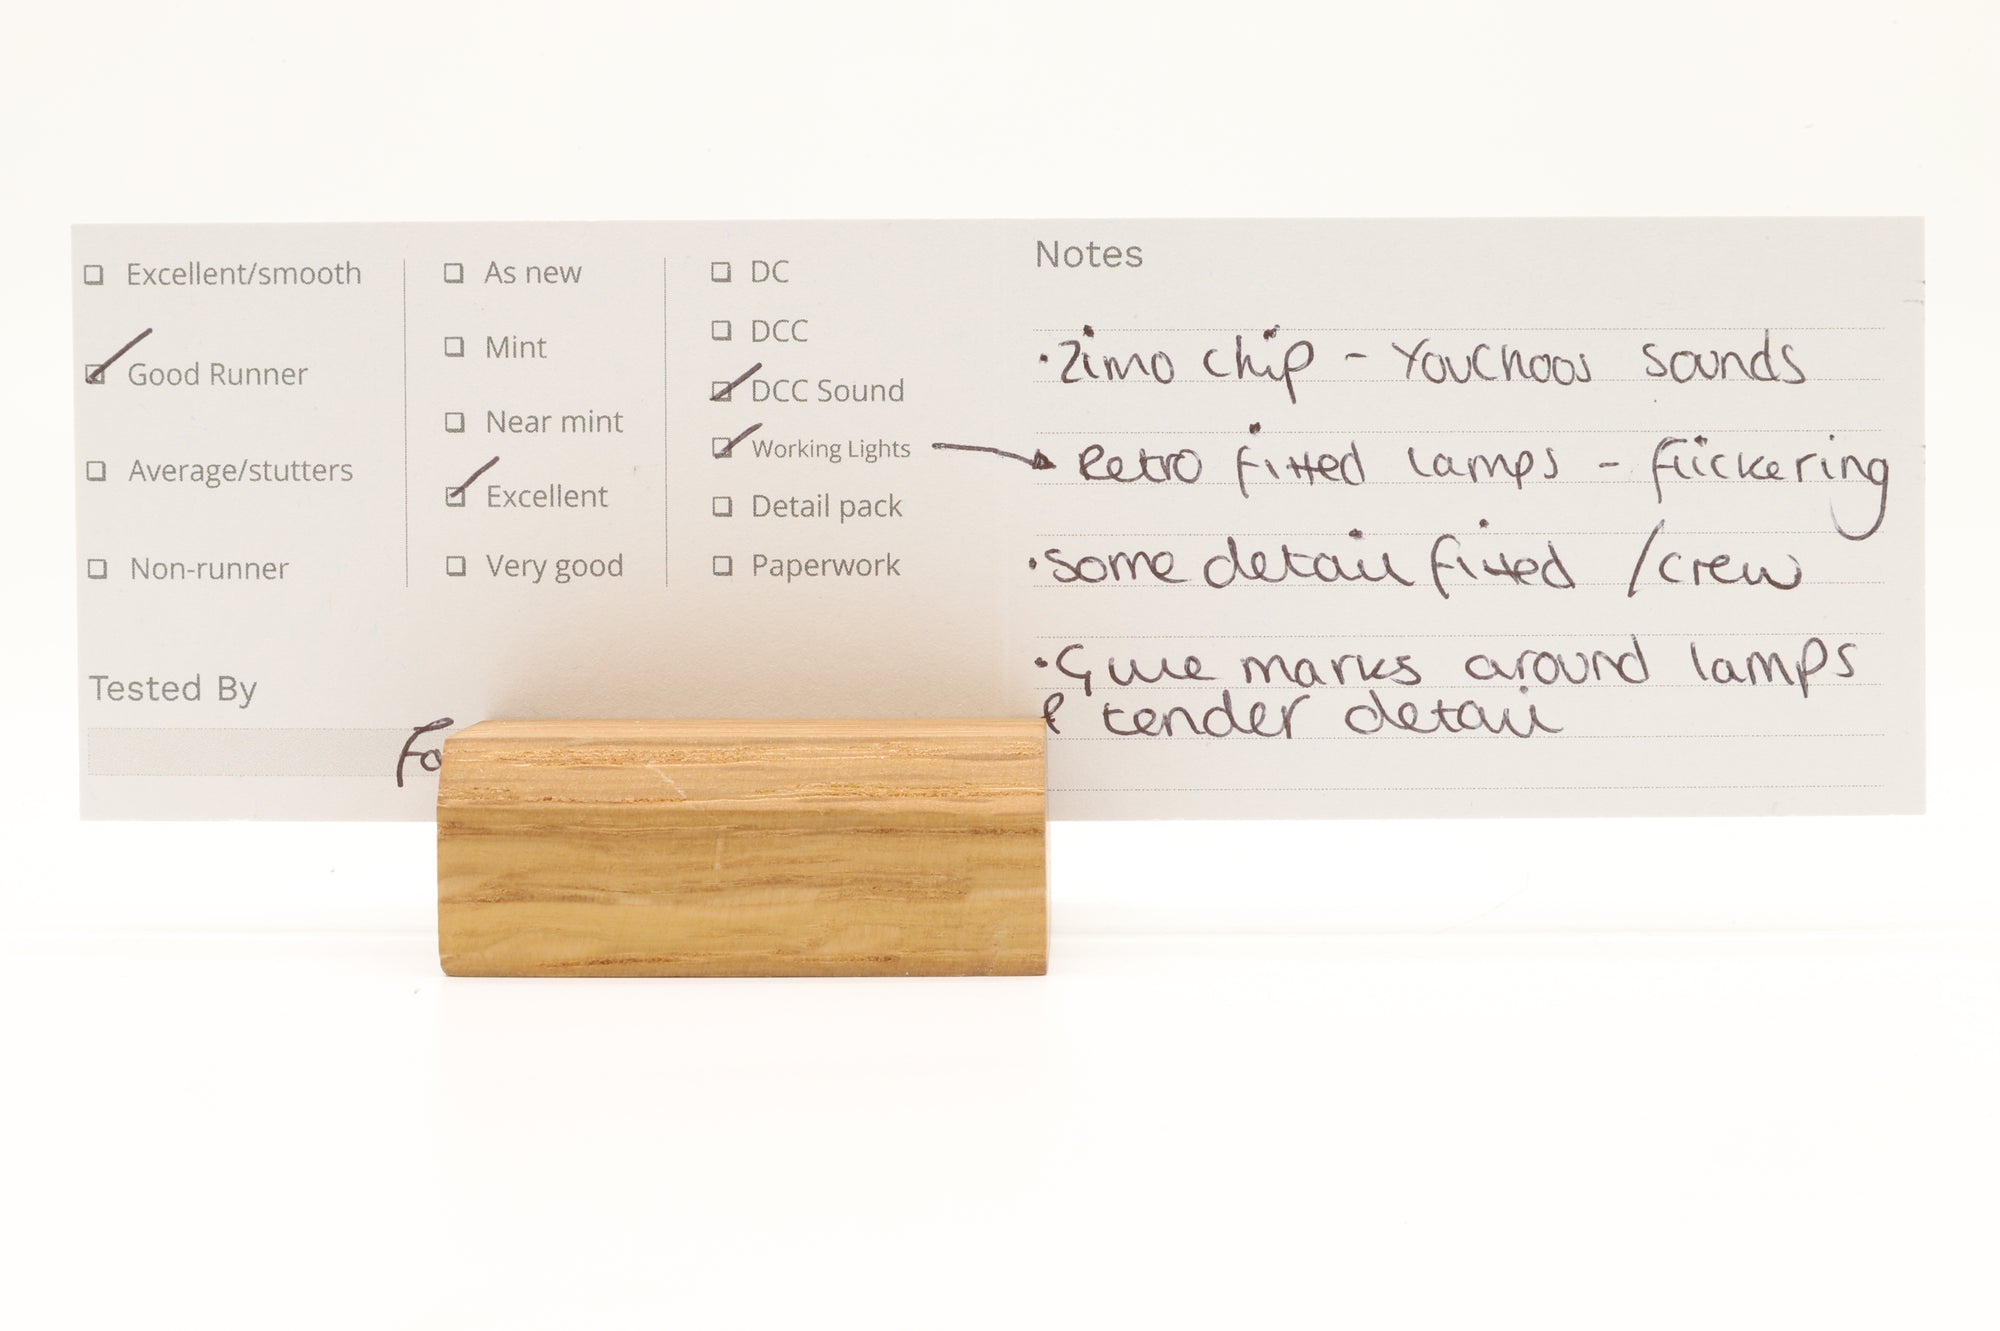 Excellent/smooth
Good Runner
Average/stutters
Non-runner
As new
Mint
Near mint
Excellent
Very good
DC
DCC
DCC Sound
Working Lights
Detail pack
Paperwork
Tested By
Notes
• Zimo chip - YouChoos sounds
Retro fitted lamps - flickering
• some detail fitted / crew
• Glue marks around lamps
& tender detail